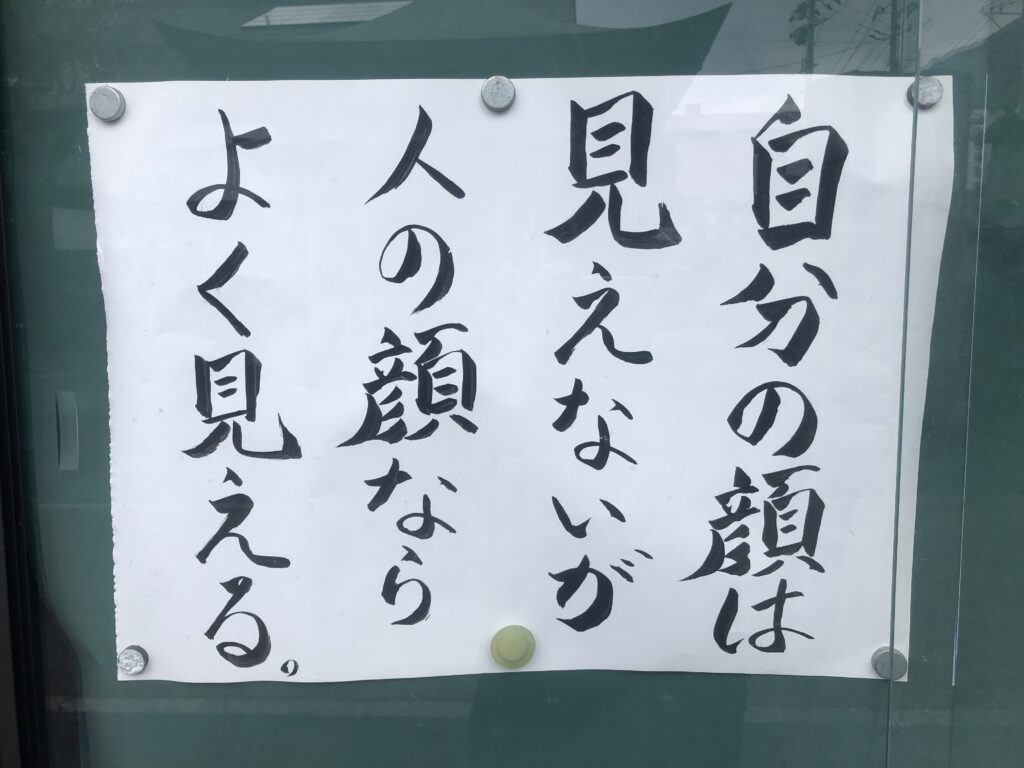 自分の顔は
見えないが
人の顔なら
よく見える。